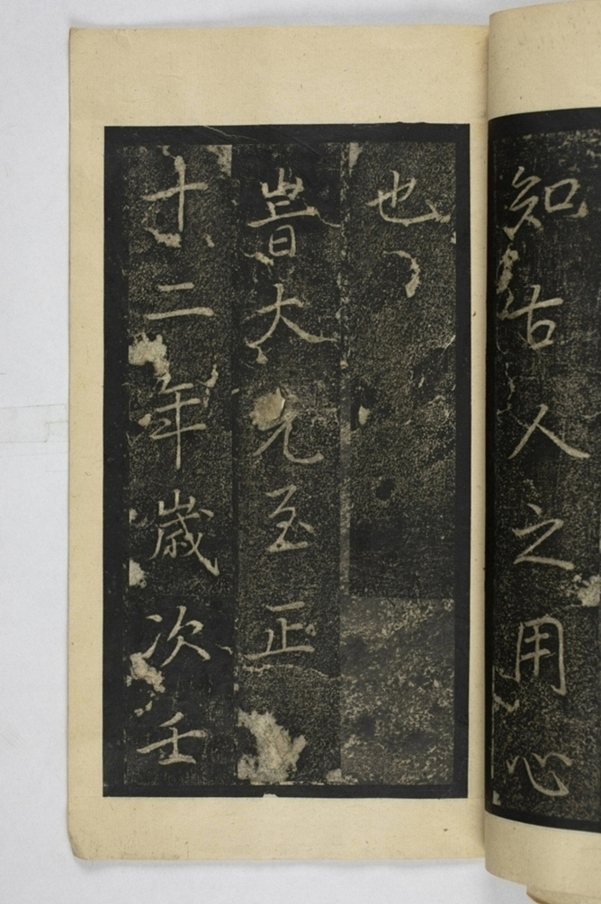 知古人之用心
也
旹大元至正
十二年歲次壬